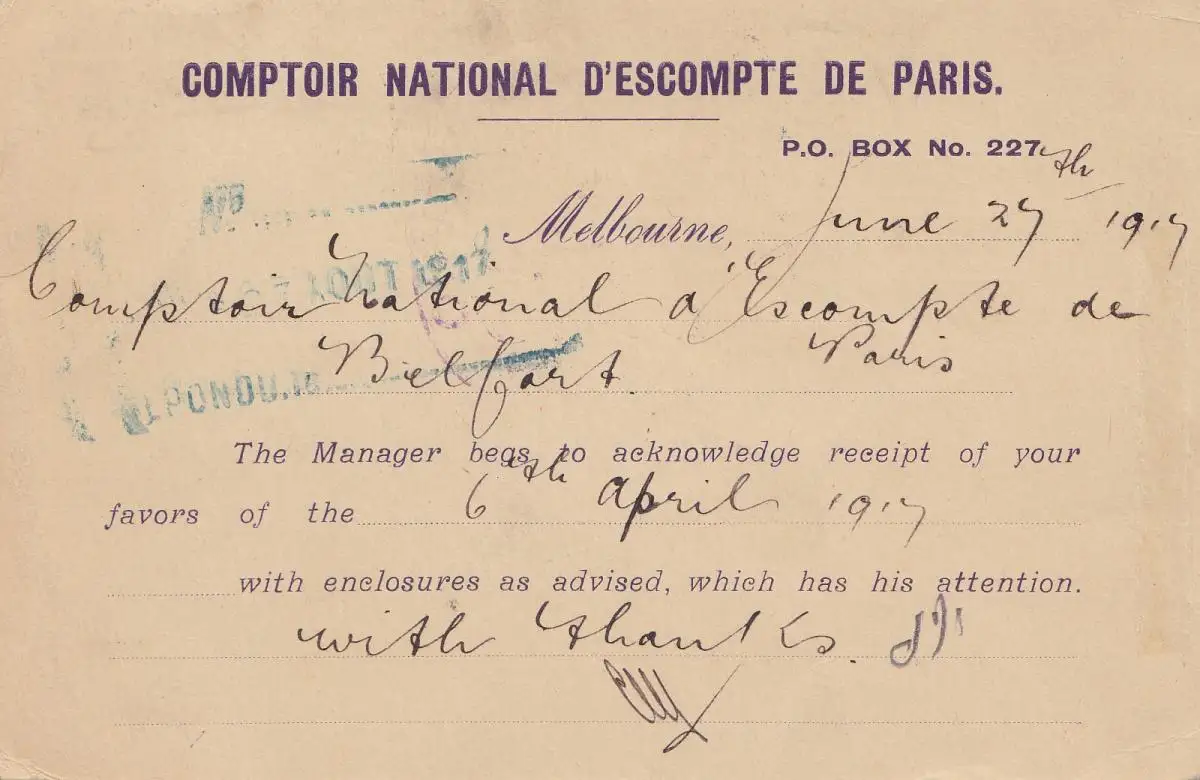 COMPTOIR NATIONAL D'ESCOMPTE DE PARIS.
P.O. BOX No. 227
Melbourne, June 27th 1917
Comptoir National d'Escompte de
Paris
Belfort.
AOUT 1917
The Manager begs to acknowledge receipt of your
favors of the 6th April 1917
with enclosures as advised, which has his attention.
with thanks.